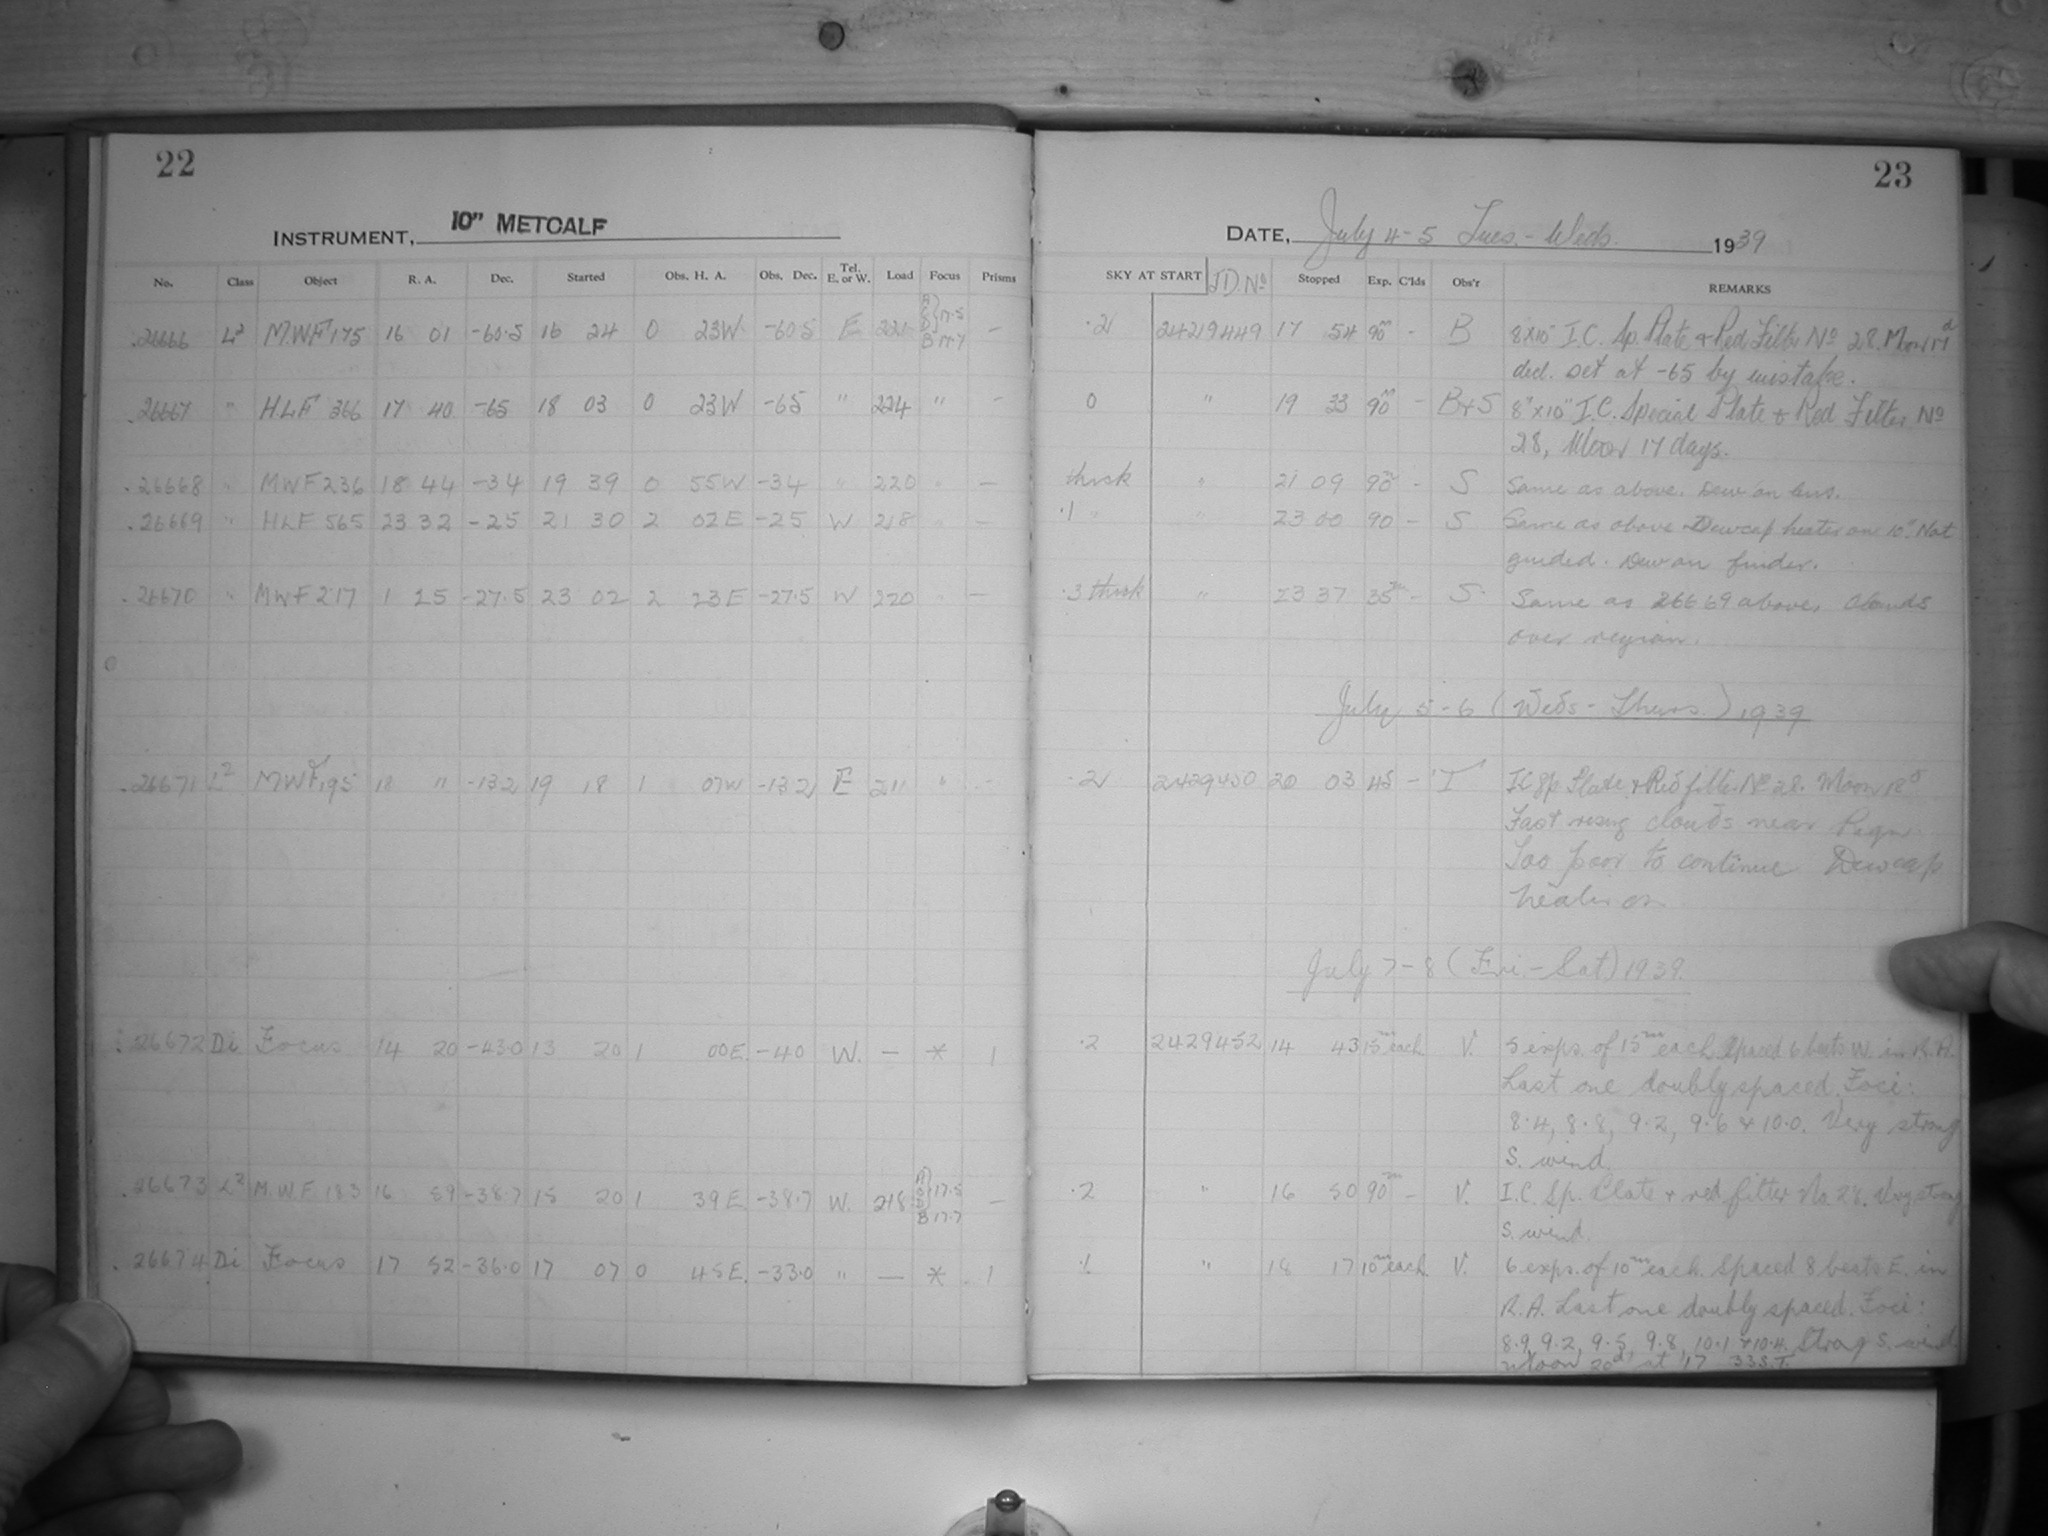 22
INSTRUMENT, 10" METCALF
No. Class Object R. A. Dec. Started Obs. H. A. Obs. Dec. Tel. E. or W. Load Focus Prisms
26666 L2 MWF 175 16 01 -60.5 16 24 0 23W -60.5 E 221 –
26667 " HLF 366 17 40 -65 18 03 0 23W -65 " 224 " –
26668 " MWF 236 18 44 -34 19 39 0 55W -34 " 220 " –
26669 " HLF 565 23 32 -25 21 30 2 02E -25 W 218 " –
26670 " MWF 217 1 25 -27.5 23 02 2 23E -27.5 W 220 " –
26671 L2 MWF 195 18 " -13.2 19 18 1 07W -13.2 E 211 " –
26672 Di Focus 14 20 -43.0 13 20 1 00E. -40 W. – * 1
26673 L2 M.W.F. 183 16 59 -38.7 15 20 1 39E. -38.7 W. 218 17.5 B 17.7 –
26674 Di Focus 17 52 -36.0 17 07 0 45E. -33.0 " – * 1
23
DATE, July 4-5 Tues.-Weds. 1939
SKY AT START J.D. No Stopped Exp. C'lds Obs'r REMARKS
.2 2429449 17 54 90m - B 8x10" I.C. Sp. Plate & Red Filter No 28. Moon 17d
decl. set at -65 by mistake.
0 " 19 33 90m - B&S 8"x10" I.C. Special Plate & Red Filter No
28, Moon 17 days.
thick " 21 09 90m - S Same as above. Dew on lens.
.1 " " 23 00 90 - S Same as above Dewcap heater on 10". Not
guided. Dew on finder.
.3 thick " 23 37 35m - S. Same as 26669 above. Clouds
over region.
July 5-6 (Weds-Thurs.) 1939
.2 2429450 20 03 45 - T IC Sp Plate & Red filter No 28. Moon 18d
Fast rising clouds near Regn.
Too poor to continue Dewcap
heater on
July 7-8 (Fri.-Sat) 1939.
.2 2429452 14 43 15m each V. 5 exps. of 15m each spaced 6 beats W. in R.A.
Last one doubly spaced. Foci:
8.4, 8.8, 9.2, 9.6 & 10.0. Very strong
S. wind.
.2 " 16 50 90m - V. I.C. Sp. Plate & red filter No. 28. Very strong
S. wind.
.1 " 18 17 10m each V. 6 exps. of 10m each. Spaced 8 beats E. in
R.A. Last one doubly spaced. Foci:
8.9, 9.2, 9.5, 9.8, 10.1 & 10.4. Strong S. wind.
Moon 20d at 17 33 S.T.